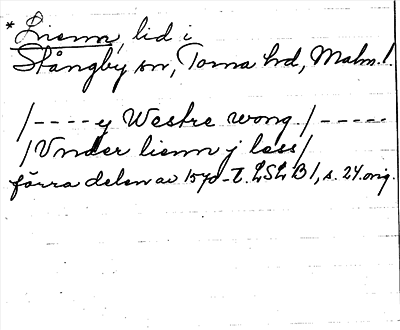 *Lienn, lid i
Stångby sn, Torna hd, Malm. l.
/---- y Westre wong /-----
/Vnder lienn j less/
förra delen av 1570-t. LSLB 1, s. 24 orig.